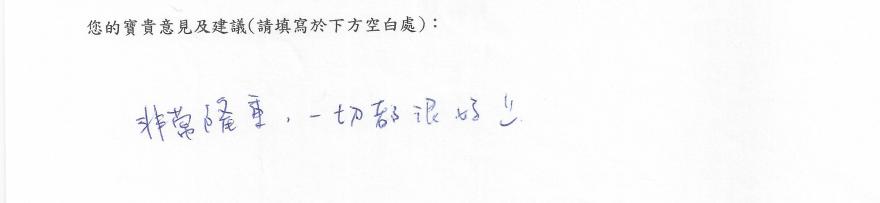 您的寶貴意見及建議(請填寫於下方空白處)：
非常隆重，一切都很好